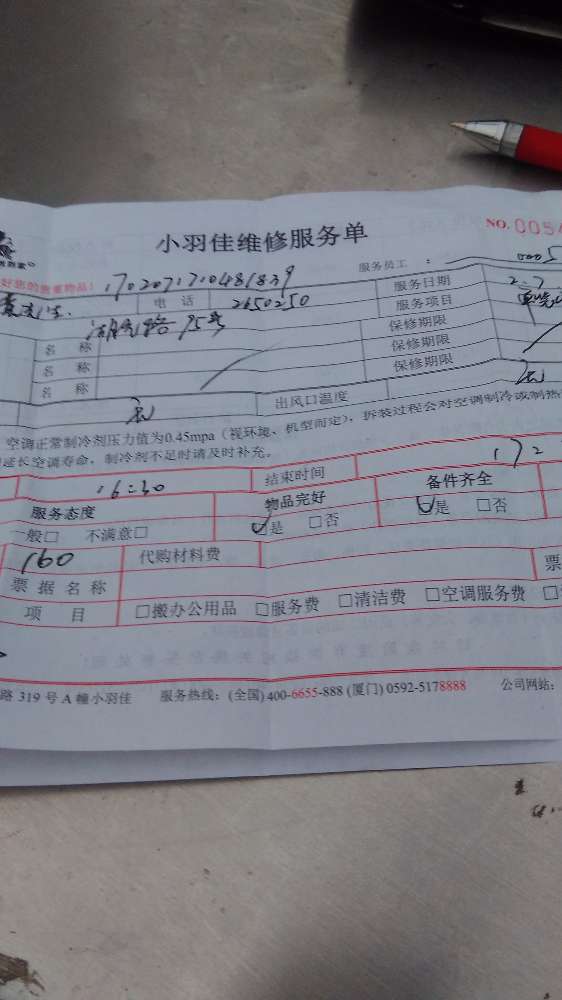 小羽佳维修服务单
NO. 0054
好您的贵重物品! 1702071710481839 服务员工 : 0005
电 话 2650250 服务日期 2.7
湖光路 95号 服务项目
名 称 保修期限
名 称 保修期限
名 称 保修期限
无 出风口温度 无
空调正常制冷剂压力值为0.45mpa(视环境、机型而定),拆装过程会对空调制冷或制热
延长空调寿命,制冷剂不足时请及时补充。
16:30 结束时间 172
服务态度 物品完好 备件齐全
一般□ 不满意□ ☑是 □否 ☑是 □否
160 代购材料费
票据名称 票
项 目 □搬办公用品 □服务费 □清洁费 □空调服务费 □
路 319 号 A 幢小羽佳 服务热线: (全国) 400-6655-888 (厦门) 0592-5178888 公司网站: